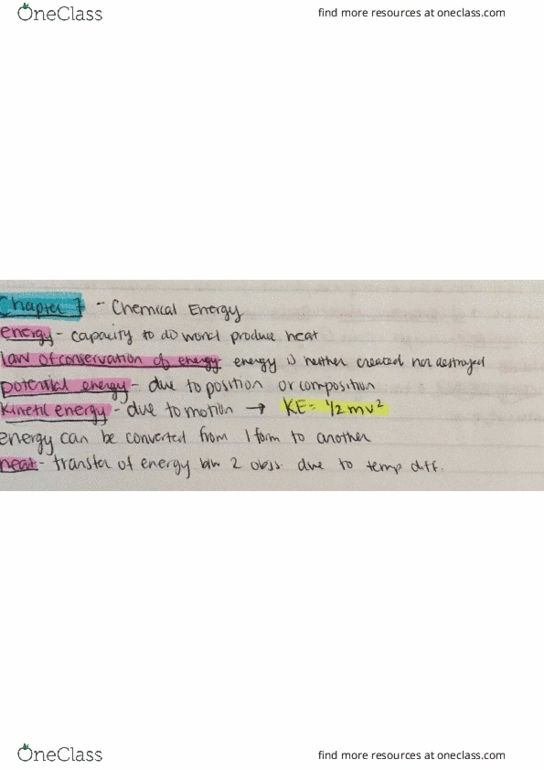 OneClass find more resources at oneclass.com
Chapter 7 - Chemical Energy
energy - capacity to do work/ produce heat
law of conservation of energy energy is neither created nor destroyed
potential energy - due to position or composition
kinetic energy - due to motion → KE = 1/2 mv²
energy can be converted from 1 form to another
heat - transfer of energy btw 2 objs. due to temp diff.
OneClass find more resources at oneclass.com